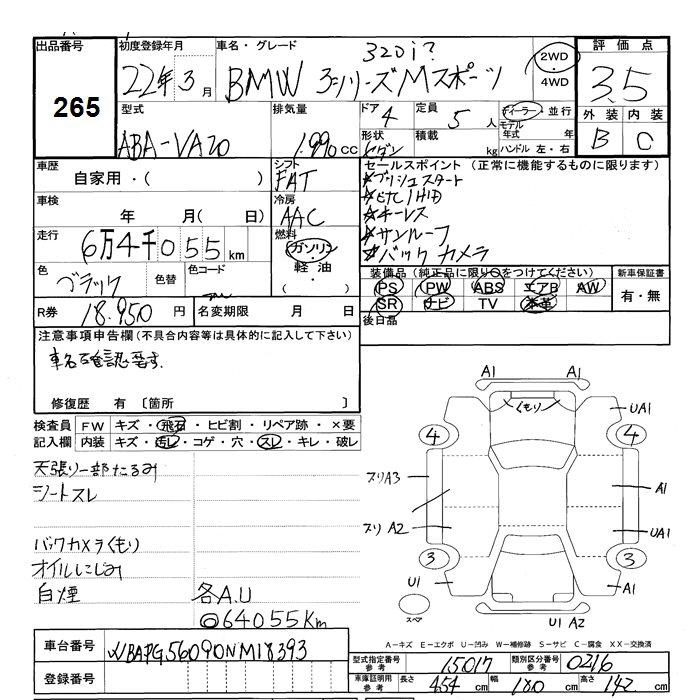 出品番号
265
初度登録年月
22年3月
車名・グレード
320i?
BMW 3シリーズMスポーツ
2WD
4WD
評価点
3.5
外装 内装
B C
型式
ABA-VA20
排気量
1.990cc
ドア 4
定員 5人
形状 セダン
積載 kg
ディーラー・並行
モデル年式 年
ハンドル 左・右
車歴
自家用・( )
シフト
FAT
セールスポイント (正常に機能するものに限ります)
★プッシュスタート
★ETC/HID
★キーレス
★サンルーフ
★バックカメラ
車検
年 月( 日)
冷房
AAC
走行
6万4千055km
燃料
ガソリン
軽油
・
色
ブラック
色替
色コード
装備品(純正品に限り○をつけてください)
PS PW ABS エアB AW
SR ナビ TV 本革
新車保証書
有・無
R券 18.950円
名変期限 月 日
後日品
注意事項申告欄(不具合内容等は具体的に記入して下さい)
車名確認要す.
修復歴 有 〔箇所 〕
検査員記入欄
FW キズ・飛石・ヒビ割・リペア跡・×要
内装 キズ・汚レ・コゲ・穴・スレ・キレ・破レ
天張り一部たるみ
シートスレ
バックカメラくもり
オイルにじみ
白煙
各A.U
◎64055Km
A1 A1
くもり
UA1
4 4
スリA3
A1
スリA2
UA1
3 3
U1
A1
スペア
U1 A2
A-キズ E-エクボ U-凹み W-補修跡 S-サビ C-腐食 XX-交換済
車台番号
WBAPG56090NM18393
登録番号
型式指定番号 参考 15017
類別区分番号 参考 0216
車庫証明用 参考
長さ 454cm
幅 180cm
高さ 142cm